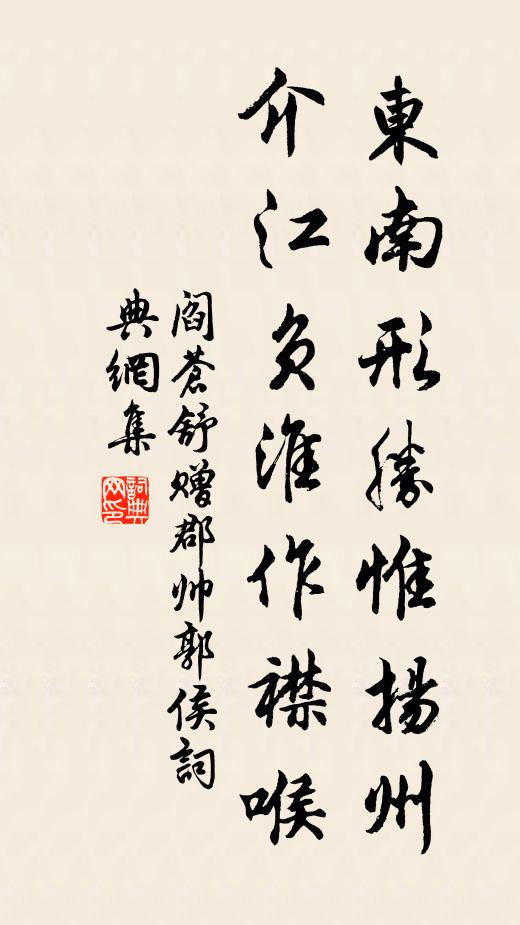 東南形勝惟揚州
介江負淮作襟喉
閻蒼舒贈郡帅郭侯詞
典網集
詞典网印